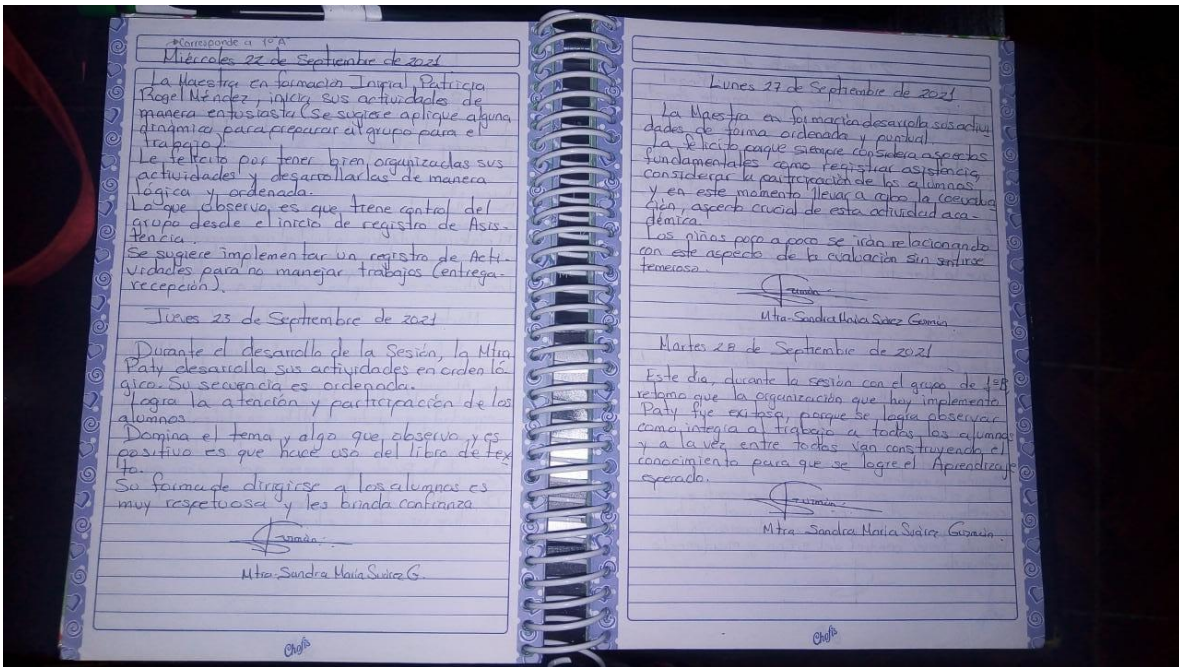 →Corresponde a 1º A
Miércoles 22 de Septiembre de 2021
La Maestra en formación Inicial Patricia
Rogel Méndez, inicia sus actividades de
manera entusiasta (Se sugiere aplique alguna
dinámica, para preparar al grupo para el
trabajo).
Le felicito por tener bien organizadas sus
actividades y desarrollarlas de manera
lógica y ordenada.
Lo que observo, es que tiene control del
grupo desde el inicio de registro de Asis-
tencia.
Se sugiere implementar un registro de Acti-
vidades para no manejar trabajos (entrega-
recepción).
Jueves 23 de Septiembre de 2021
Durante el desarrollo de la Sesión, la Mtra
Paty desarrolla sus actividades en orden ló-
gico. Su secuencia es ordenada.
Logra la atención y participación de los
alumnos.
Domina el tema y algo que observo, y es
positivo es que hace uso del libro de tex
to.
Su forma de dirigirse a los alumnos es
muy respetuosa y les brinda confianza
Guzmán
Mtra. Sandra María Suárez G.
Chefis
Lunes 27 de Septiembre de 2021
La Maestra en formación desarrolla sus activi
dades de forma ordenada y puntual.
La felicito porque siempre considera aspectos
fundamentales como registrar asistencia,
considerar la participación de los alumnos
y en este momento llevar a cabo la coevalua
ción, aspecto crucial de esta actividad aca-
démica.
Los niños poco a poco se irán relacionando
con este aspecto de la evaluación sin sentirse
temeroso.
Guzmán
Mtra. Sandra María Suárez Guzmán
Martes 28 de Septiembre de 2021
Este día, durante la sesión con el grupo de 1º B
retomo que la organización que hoy implementó
Paty fue exitosa, porque se logra observar
como integra al trabajo a todos los alumnos
y a la vez entre todos van construyendo el
conocimiento para que se logre el Aprendizaje
esperado.
Guzmán
Mtra. Sandra María Suárez Guzmán.